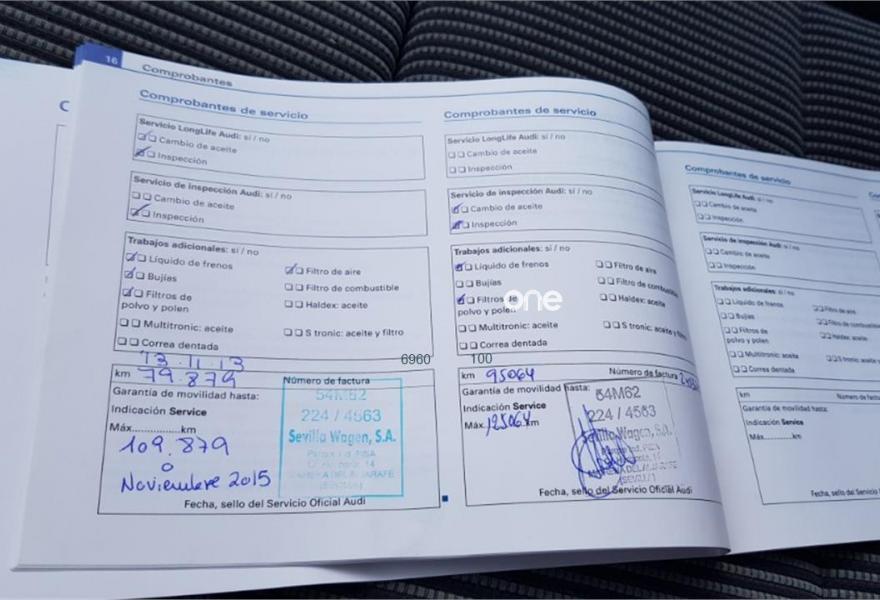 16
Comprobantes
Comprobantes de servicio
Servicio LongLife Audi: sí / no
Cambio de aceite
Inspección
Servicio de inspección Audi: sí / no
Cambio de aceite
Inspección
Trabajos adicionales: sí / no
Líquido de frenos
Filtro de aire
Bujías
Filtro de combustible
Filtros de
polvo y polen
Haldex: aceite
Multitronic: aceite
S tronic: aceite y filtro
Correa dentada
13.11.13
km 79.879
Número de factura
Garantía de movilidad hasta:
Indicación Service
Máx...............km
109.879
o
Noviembre 2015
54M62
224 / 4563
Sevilla Wagen, S.A.
Fecha, sello del Servicio Oficial Audi
Comprobantes de servicio
Servicio LongLife Audi: sí / no
Cambio de aceite
Inspección
Servicio de inspección Audi: sí / no
Cambio de aceite
Inspección
Trabajos adicionales: sí / no
Líquido de frenos
Filtro de aire
Bujías
Filtro de combustible
Filtros de
polvo y polen
Haldex: aceite
Multitronic: aceite
S tronic: aceite y filtro
Correa dentada
one
6960
100
km 95064
Número de factura
Garantía de movilidad hasta:
Indicación Service
Máx. 125064 km
54M62
224 / 4563
Sevilla Wagen, S.A.
Fecha, sello del Servicio Oficial Audi
Comprobantes de servicio
Servicio LongLife Audi: sí / no
Cambio de aceite
Inspección
Servicio de inspección Audi: sí / no
Cambio de aceite
Inspección
Trabajos adicionales: sí / no
Líquido de frenos
Filtro de aire
Bujías
Filtro de combustible
Filtros de
polvo y polen
Haldex: aceite
Multitronic: aceite
S tronic: aceite
Correa dentada
km
Garantía de movilidad hasta:
Indicación Service
Máx...............km
Fecha, sello del Servicio